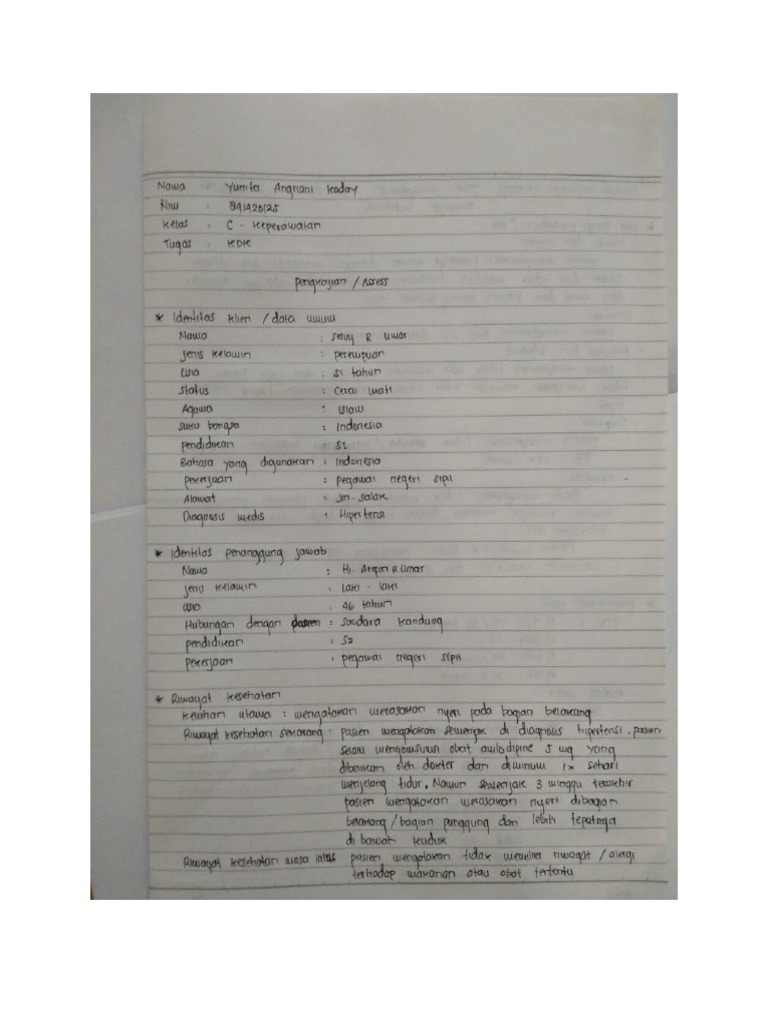 Nama : Yunita Angriani Kaday
Nim : 841420125
Kelas : C - Keperawatan
Tugas : KDK
Pengkajian / Asses
* Identitas klien / data umum
Nama : Selvy R Umar
Jenis kelamin : perempuan
Usia : 51 tahun
Status : Cerai mati
Agama : Islam
Suku bangsa : Indonesia
pendidikan : S1
Bahasa yang digunakan : Indonesia
pekerjaan : pegawai negeri sipil
Alamat : Jln. salak
Diagnosis medis : Hipertensi
* Identitas penanggung jawab
Nama : Hi. Aripin R Umar
Jenis kelamin : Laki - laki
Usia : 46 tahun
Hubungan dengan pasien : Saudara kandung
pendidikan : S2
pekerjaan : pegawai negeri sipil
* Riwayat kesehatan
Keluhan utama : mengatakan merasakan nyeri pada bagian belakang
Riwayat kesehatan sekarang : pasien mengatakan semenjak di diagnosis hipertensi, pasien
selalu mengonsumsi obat amlodipine 5 mg yang
diberikan oleh dokter dan diminum 1x sehari
menjelang tidur. Namun semenjak 3 minggu terakhir
pasien mengatakan merasakan nyeri dibagian
belakang / bagian punggung dan lebih tepatnya
di bawah kuduk
Riwayat kesehatan masa lalu : pasien mengatakan tidak memiliki riwayat / alergi
terhadap makanan atau obat tertentu